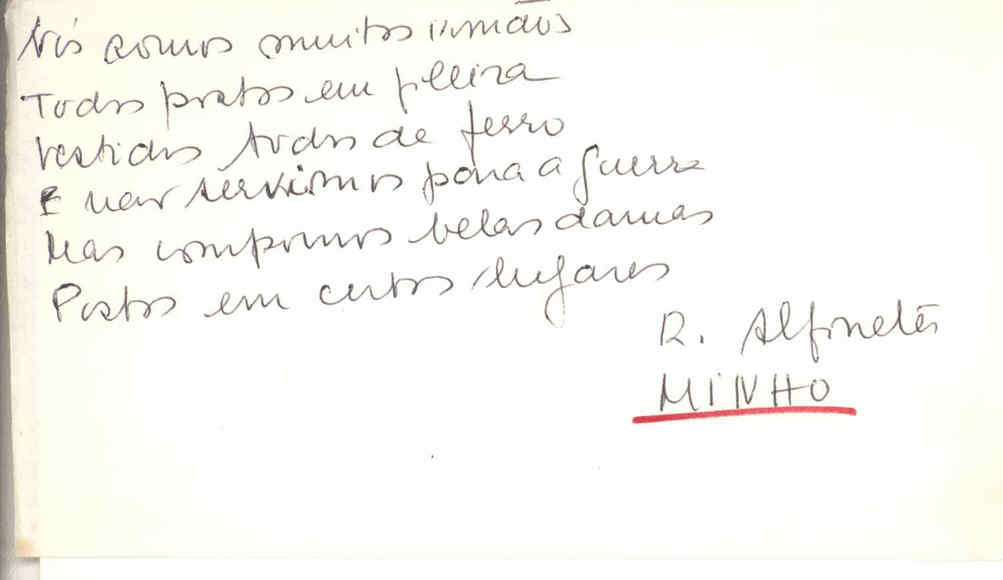 Nós somos muitos irmãos
Todos postos em fileira
Vestidos todos de ferro
E não servimos para a guerra
Mas compomos belas damas
Postos em certos lugares
R. Alfinetes
MINHO